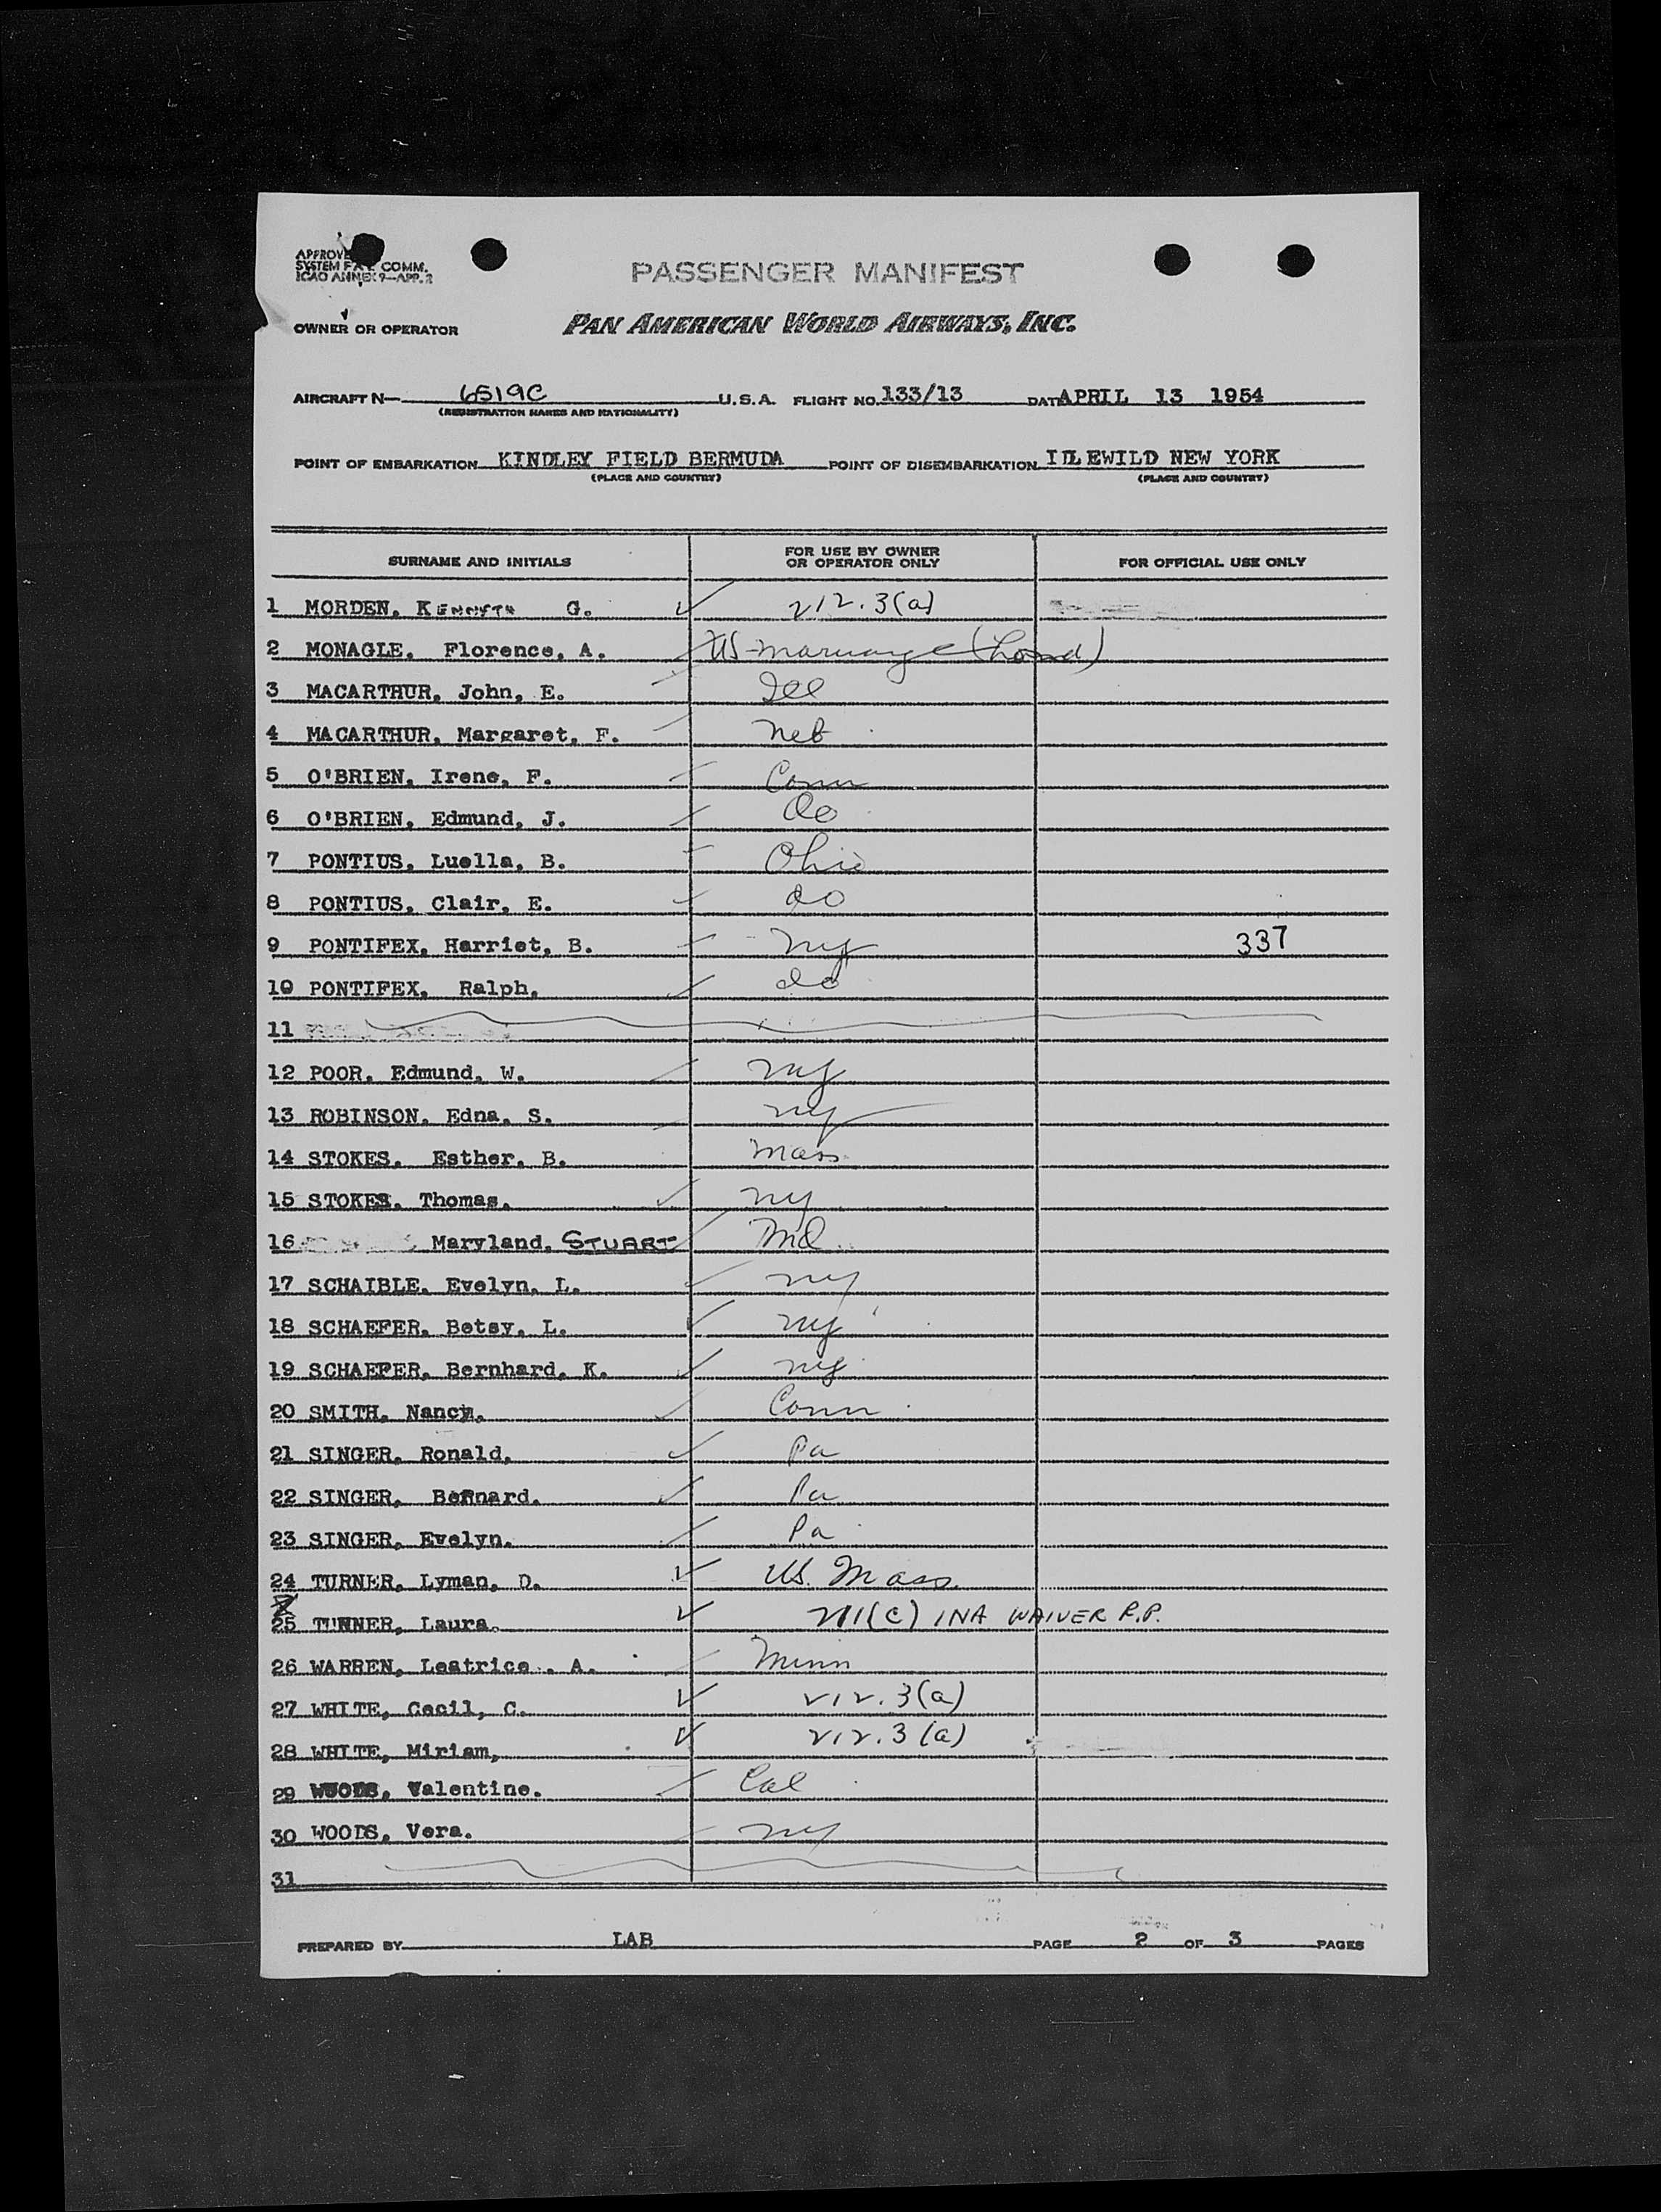 APPROVE
SYSTEM FAL COMM.
ICAO ANNEX 9—APP. 2
PASSENGER MANIFEST
OWNER OR OPERATOR PAN AMERICAN WORLD AIRWAYS, INC.
AIRCRAFT N— 6519C U.S.A. FLIGHT NO. 133/13 DATE APRIL 13 1954
(REGISTRATION MARKS AND NATIONALITY)
POINT OF EMBARKATION KINDLEY FIELD BERMUDA POINT OF DISEMBARKATION IDLEWILD NEW YORK
(PLACE AND COUNTRY) (PLACE AND COUNTRY)
SURNAME AND INITIALS FOR USE BY OWNER OR OPERATOR ONLY FOR OFFICIAL USE ONLY
1 MORDEN, KENNETH G. 212.3(a)
2 MONAGLE, Florence, A. US-marriage
3 MACARTHUR, John, E. Ill
4 MACARTHUR, Margaret, F. Neb
5 O'BRIEN, Irene, F. Conn
6 O'BRIEN, Edmund, J. do
7 PONTIUS, Luella, B. Ohio
8 PONTIUS, Clair, E. do
9 PONTIFEX, Harriet, B. ny 337
10 PONTIFEX, Ralph, do
11
12 POOR, Edmund, W. ny
13 ROBINSON, Edna, S. ny
14 STOKES, Esther, B. Mass
15 STOKES, Thomas, ny
16 Maryland, STUART Md
17 SCHAIBLE, Evelyn, L. ny
18 SCHAEFER, Betsy, L. ny
19 SCHAEFER, Bernhard, K. ny
20 SMITH, Nancy, Conn
21 SINGER, Ronald, Pa
22 SINGER, Bernard, Pa
23 SINGER, Evelyn, Pa
24 TURNER, Lyman, D. US. Mass
25 TUNNER, Laura. 211(c) INA WAIVER P.P.
26 WARREN, Leatrice, A. Minn
27 WHITE, Cecil, C. 212.3(a)
28 WHITE, Miriam, 212.3(a)
29 WOODS, Valentine. Cal
30 WOODS, Vera. ny
31
PREPARED BY LAB PAGE 2 OF 3 PAGES